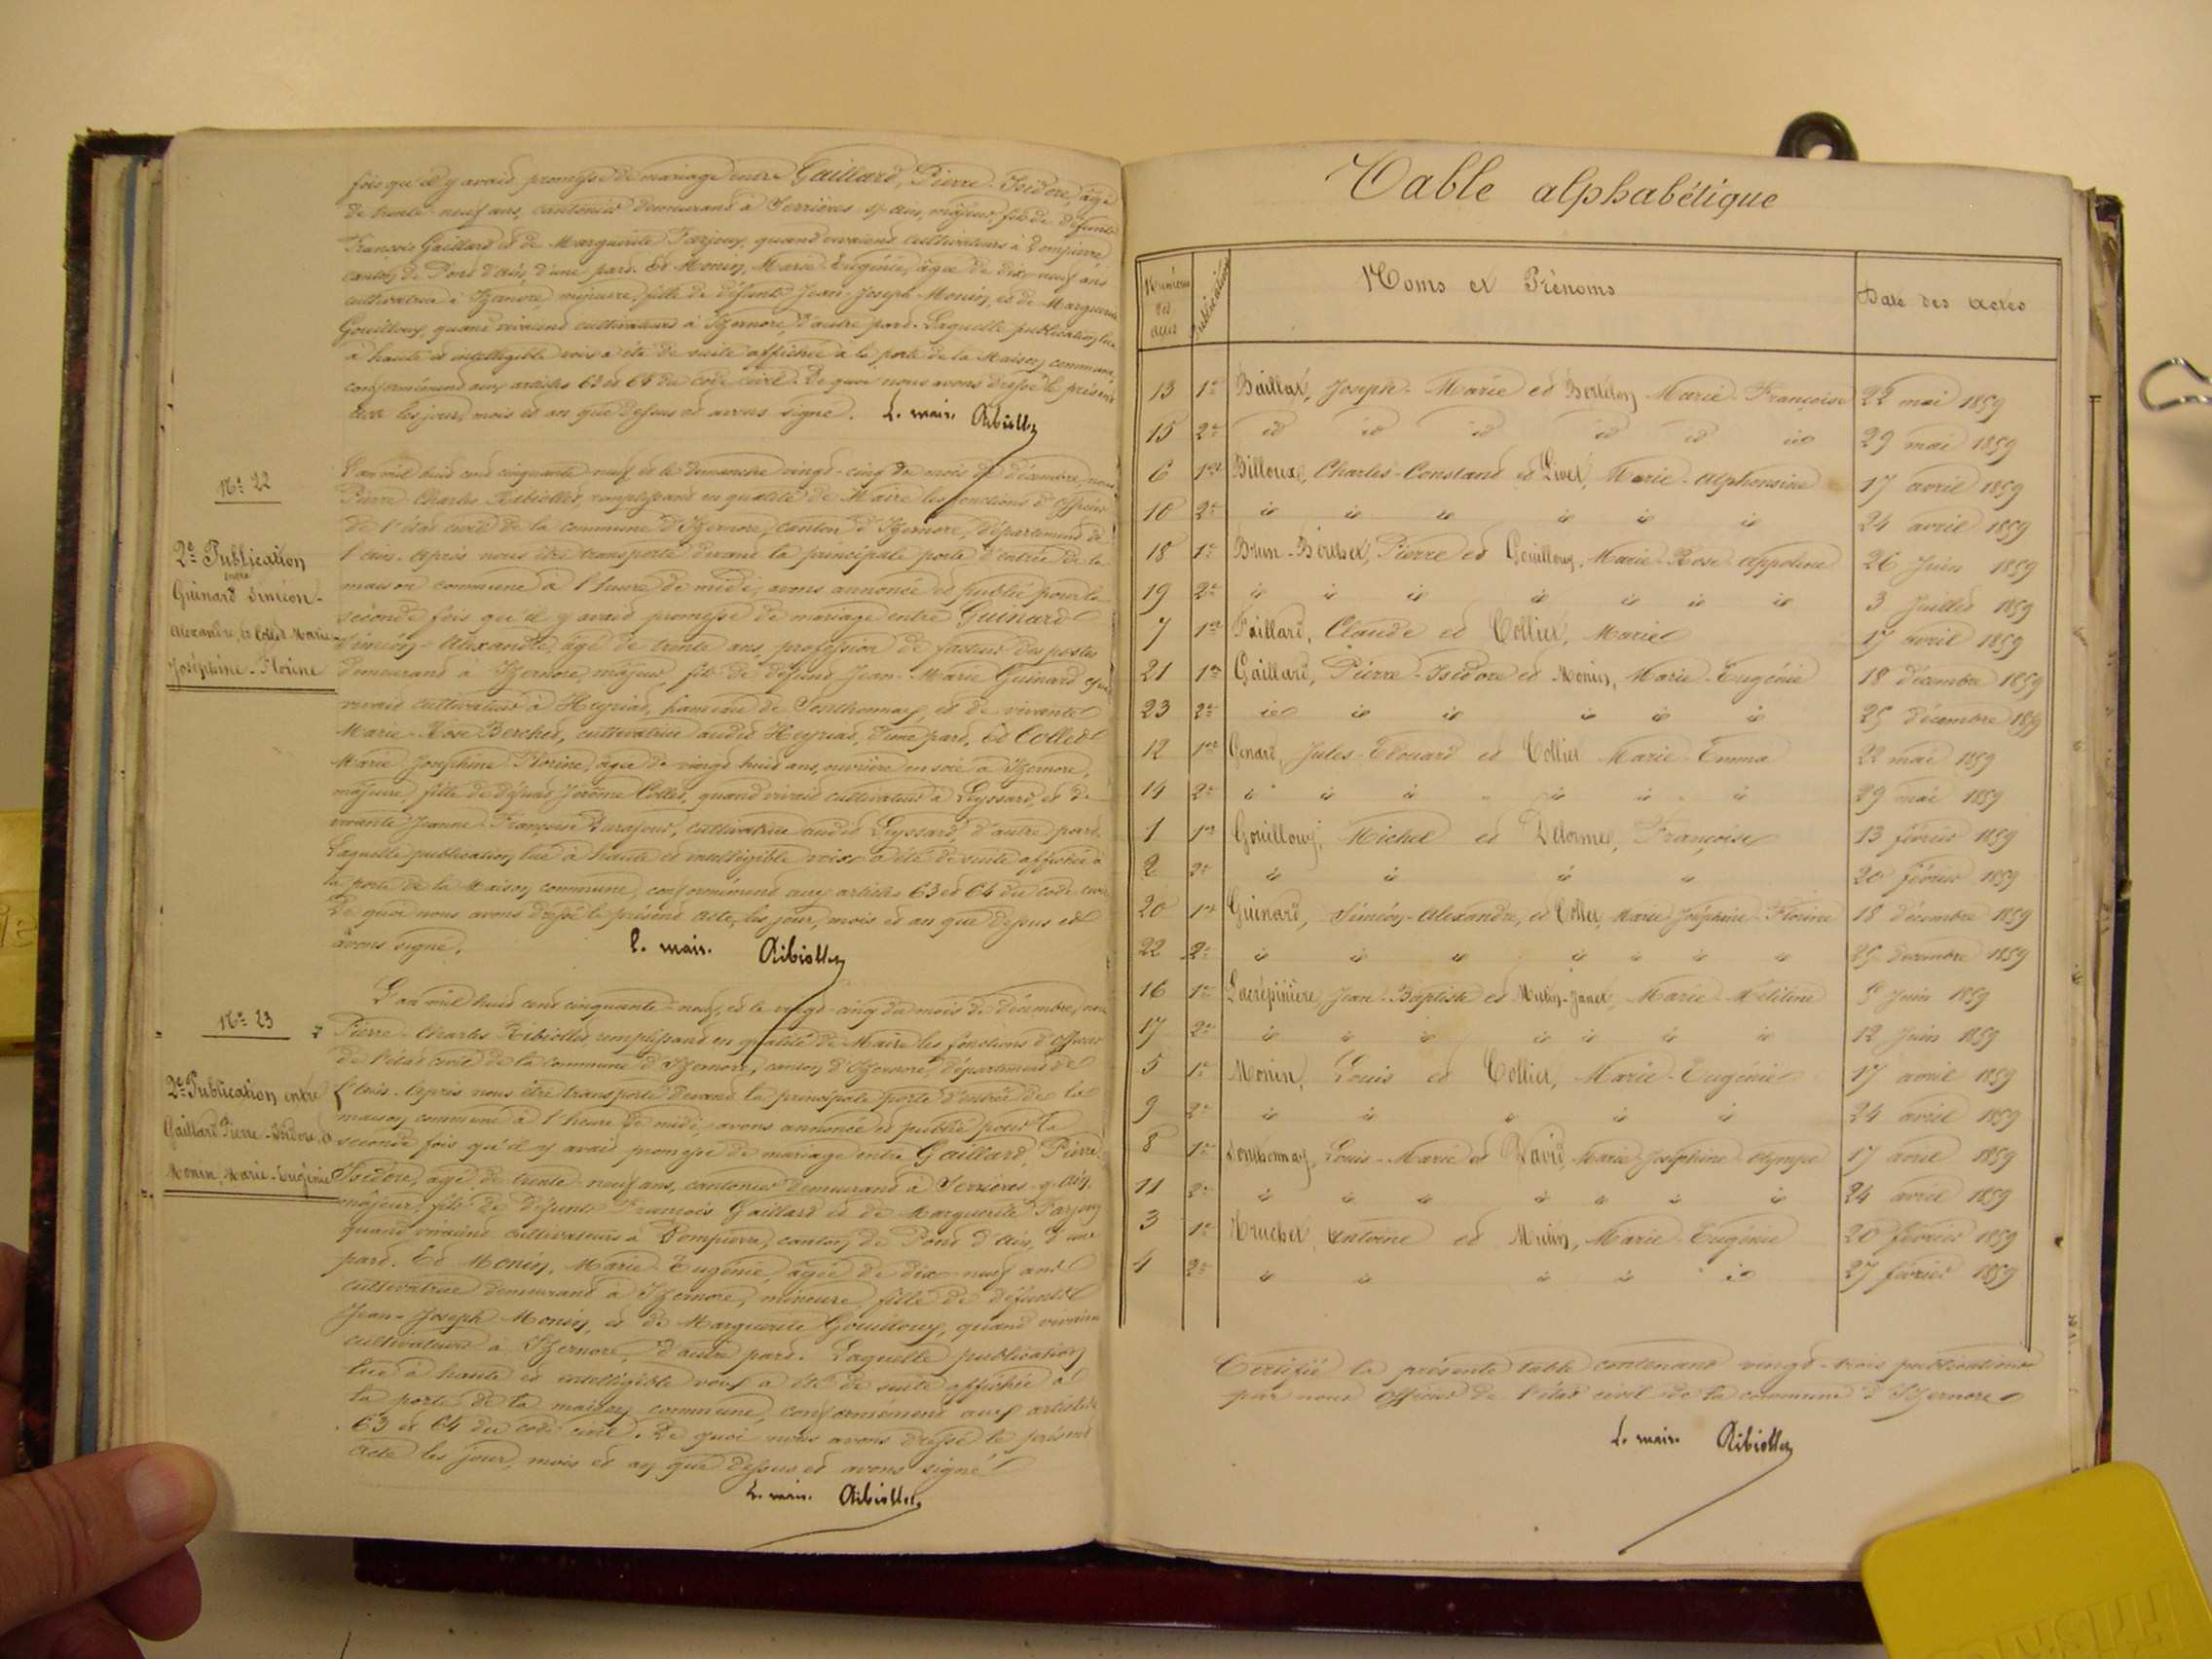 fois qu'il y avait promesse de mariage entre Gaillard, Pierre-Isidore, âgé
de trente-neuf ans, cantonier demeurant à Serrières s/ Ain, majeur, fils de défunts
François Gaillard et de Marguerite Farjoux, quand vivaient cultivateurs à Dompierre
canton de Pont d'Ain, d'une part. Et Monin, Marie-Eugénie, âgée de dix-neuf ans
cultivatrice à Izernore, mineure, fille de défunts Jean-Joseph Monin, et de Marguerite
Gouilloux, quand vivaient cultivateurs à Izernore, d'autre part. Laquelle publication lue
à haute et intelligible voix a été de suite affichée à la porte de la Maison commune,
conformément aux articles 63 et 64 du code civil. De quoi nous avons dressé le présent
acte les jour, mois et an que dessus et avons signé. Le maire Ribiollet
Nº 22
2e Publication
entre
Guinard Siméon-
Alexandre, et Collet Marie-
Joséphine-Florine
L'an mil huit cent cinquante neuf et le dimanche vingt-cinq du mois de décembre, nous
Pierre-Charles Ribiollet, remplissant en qualité de Maire les fonctions d'officier
de l'état civil de la commune d'Izernore, canton d'Izernore, département de
l'ain. Après nous être transporté devant la principale porte d'entrée de la
maison commune à l'heure de midi, avons annoncé et publié pour la
seconde fois qu'il y avait promesse de mariage entre Guinard
Siméon-Alexandre, âgé de trente ans, profession de facteur des postes
demeurant à Izernore, majeur, fils de défunt Jean-Marie Guinard quand
vivait cultivateur à Heyriat, hameau de Sonthonnax, et de vivante
Marie-Rose Berchet, cultivatrice audit Heyriat, d'une part. Et Collet
Marie Joséphine Florine, âgée de vingt huit ans, ouvrière en soie à Izernore,
majeure, fille de défunt Jérôme Collet, quand vivait cultivateur à Leyssard, et de
vivante Jeanne-Françoise Durafour, cultivatrice audit Leyssard d'autre part.
Laquelle publication, lue à haute et intelligible voix a été de suite affichée à
la porte de la Maison commune, conformément aux articles 63 et 64 du code civil
De quoi nous avons dressé le présent acte, les jour, mois et an que dessus et
avons signé. Le maire Ribiollet
Nº 23
2e Publication entre
Gaillard Pierre-Isidore, et
Monin, Marie-Eugénie
L'an mil huit cent cinquante-neuf, et le vingt-cinq du mois de décembre, nous
Pierre-Charles Ribiollet, remplissant en qualité de Maire les fonctions d'officier
de l'état civil de la commune d'Izernore, canton d'Izernore, département de
l'ain. Après nous être transporté devant la principale porte d'entrée de la
maison commune à l'heure de midi, avons annoncé et publié pour la
seconde fois qu'il y avait promesse de mariage entre Gaillard, Pierre
Isidore, âgé de trente-neuf ans, cantonier demeurant à Serrières s/ Ain,
majeur, fils de défunts François Gaillard et de Marguerite Farjoux
quand vivaient cultivateurs à Dompierre, canton de Pont d'Ain, d'une
part. Et Monin, Marie-Eugénie, âgée de dix-neuf ans
cultivatrice demeurant à Izernore, mineure, fille de défunts
Jean-Joseph Monin, et de Marguerite Gouilloux, quand vivaient
cultivateurs à Izernore, d'autre part. Laquelle publication
lue à haute et intelligible voix a été de suite affichée à
la porte de la maison commune, conformément aux articles
63 et 64 du code civil. De quoi nous avons dressé le présent
acte les jour, mois et an que dessus et avons signé
Le maire Ribiollet
Table alphabétique
Numéros des actes Publications Noms et Prénoms Date des actes
13 1re Baillat, Joseph-Marie et Berthon Marie-Françoise 22 mai 1859
15 2e id id id id id id 29 mai 1859
6 1re Billoux, Charles-Constant et Livet, Marie-Alphonsine 17 avril 1859
10 2e id id id id id id 24 avril 1859
18 1re Brun-Bourdset, Pierre et Gouilloux, Marie-Rose-Appoline 26 Juin 1859
19 2e id id id id id id id 3 Juillet 1859
7 1re Faillard, Claude et Collet, Marie 17 avril 1859
21 1re Gaillard, Pierre-Isidore et Monin, Marie-Eugénie 18 décembre 1859
23 2e id id id id id id 25 décembre 1859
12 1re Genard, Jules-Edouard et Collet Marie-Emma 22 mai 1859
14 2e id id id id id id 29 mai 1859
1 1re Gouilloux, Michel et Delorme, Françoise 13 février 1859
2 2e id id id id 20 février 1859
20 1re Guinard, Siméon-Alexandre, et Collet Marie Joséphine-Florine 18 décembre 1859
22 2e id id id id id id id 25 décembre 1859
16 1re Lacrépinière Jean-Baptiste et Mulin-Janet, Marie-Méliline 5 Juin 1859
17 2e id id id id id id id 12 Juin 1859
5 1re Monin, Louis et Collet, Marie-Eugénie 17 avril 1859
9 2e id id id id id 24 avril 1859
8 1re Sonthonnax, Louis-Marie et David, Marie-Joséphine-Olympe 17 avril 1859
11 2e id id id id id id id 24 avril 1859
3 1re Truchet, Antoine et Mulin, Marie-Eugénie 20 février 1859
4 2e id id id id id 27 février 1859
Certifié la présente table contenant vingt-trois publications
par nous Officier de l'état civil de la commune d'Izernore
Le maire Ribiollet